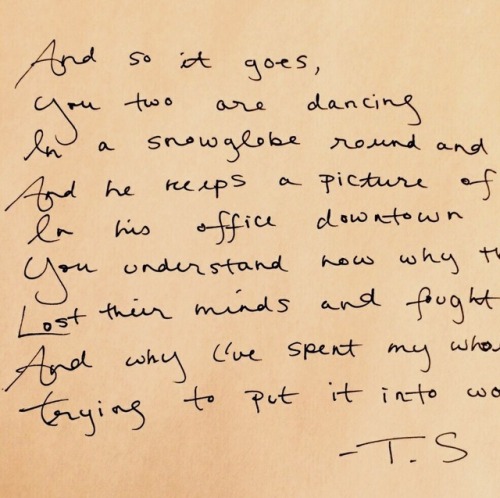 And so it goes,
You two are dancing
In a snowglobe round and
And he keeps a picture of
In his office downtown
You understand now why th
Lost their minds and fought
And why I've spent my who
trying to put it into wo
-T.S